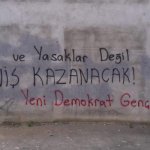 ve Yasaklar Değil
KAZANACAK!
Yeni Demokrat Genç